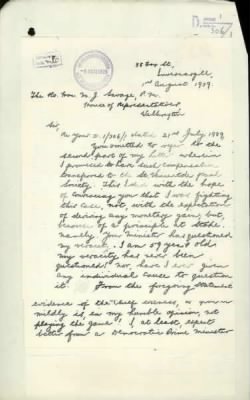 D.
306/1
88 Box St,
Invercargill
1st August 1939.
The Rt. Hon. M. J. Savage, P. M.
House of Representatives
Wellington
Sir,
Re your D. 1/306/1 dated 21st July 1939
You omitted to refer to the
second part of my letter wherein
I promised to have such compensation
transferred to the
Society. This I did with the hope
of convincing you that I was fighting
this case, not with the expectation
of deriving any monetary gain, but,
because of a principle at stake.
namely your Minister has questioned
my veracity. I am 59 years old
my veracity has never been
questioned nor have I ever given
any individual cause to question
it. From the foregoing statement
evidence of the Chief
mildly is, in my humble opinion, not
playing the game! I, at least, expect
better from a Democratic Prime Minister